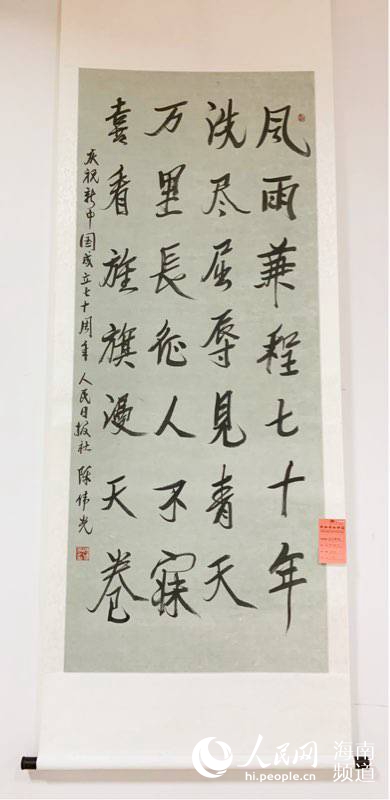 风雨兼程七十年
洗尽屈辱見青天
万里長征人不寐
喜看旌旗漫天卷
庆祝新中国成立七十周年 人民日报社 陈伟光
人民网 海南频道
hi.people.cn